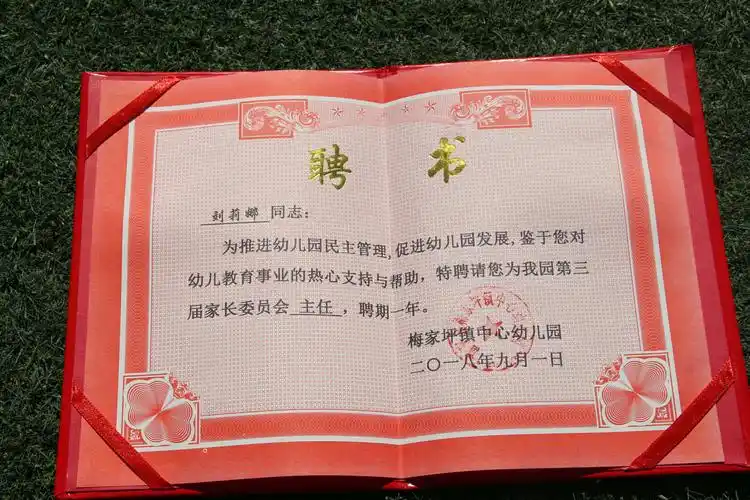 聘 书
刘莉娜 同志：
为推进幼儿园民主管理,促进幼儿园发展,鉴于您对
幼儿教育事业的热心支持与帮助，特聘请您为我园第三
届家长委员会 主任 ，聘期一年。
梅家坪镇中心幼儿园
二〇一八年九月一日